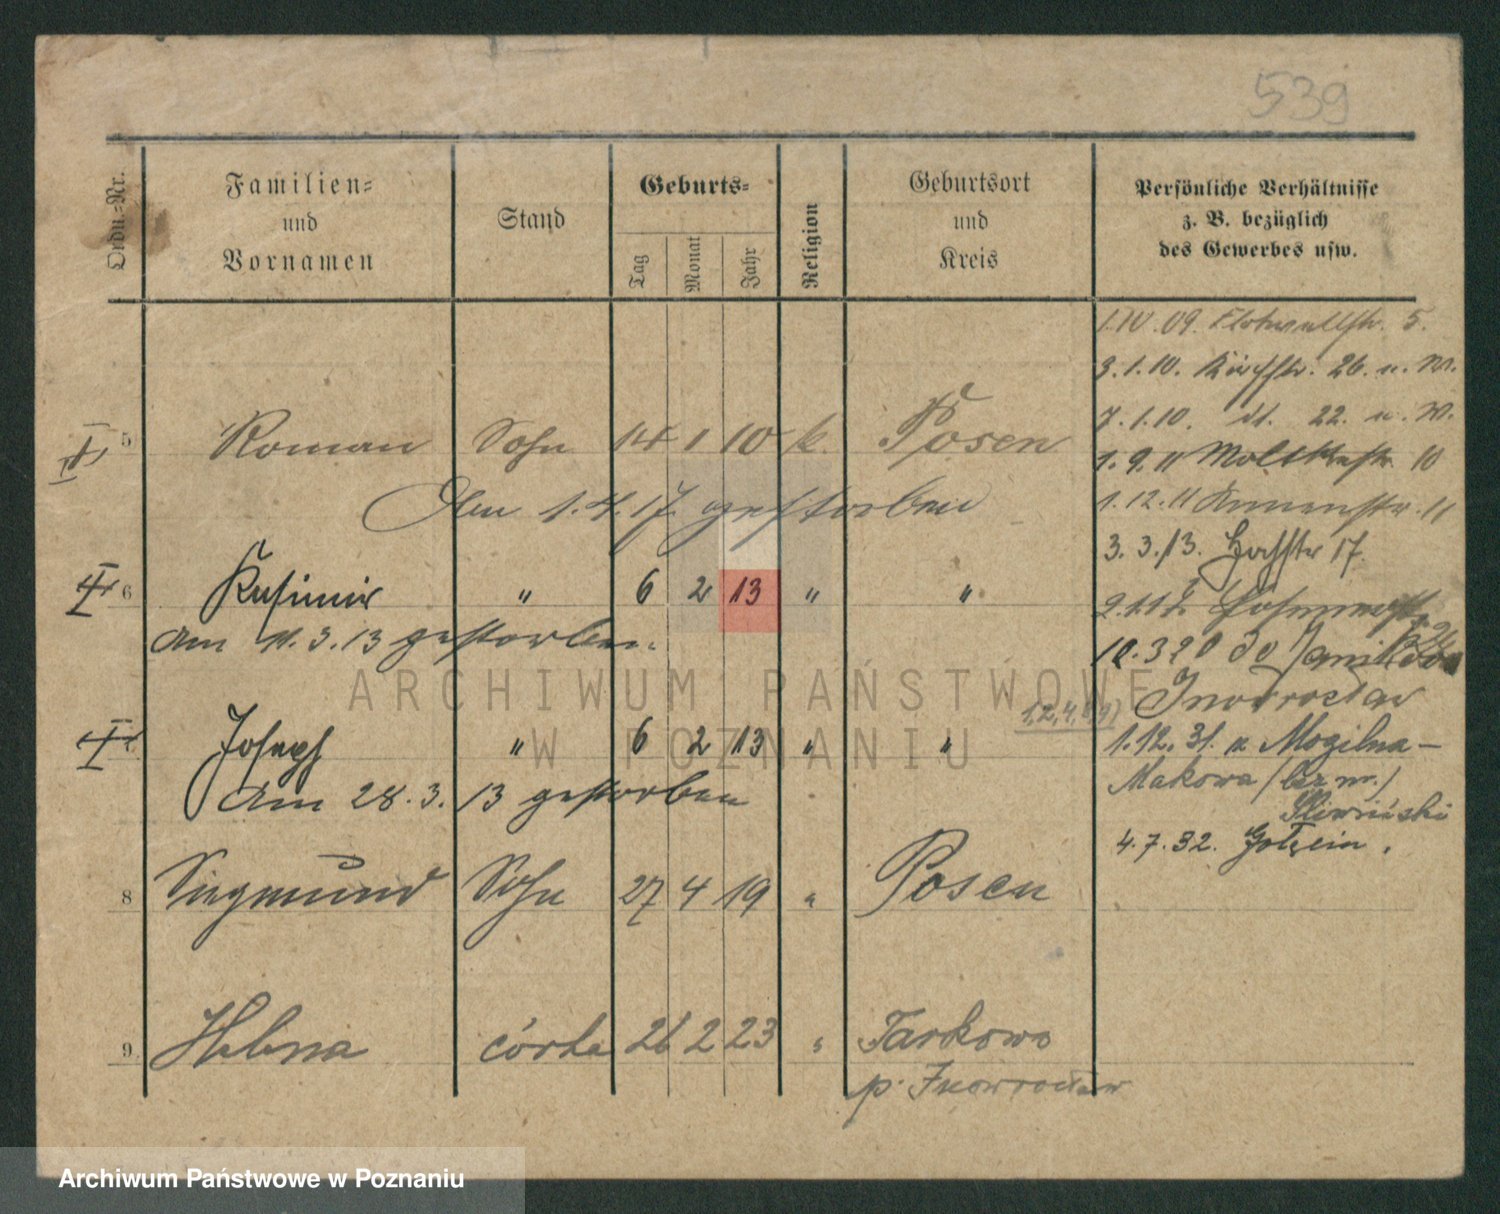 539
Ordn.-Nr.
Familien-
und
Vornamen
Stand
Geburts-
Tag
Monat
Jahr
Religion
Geburtsort
und
Kreis
Persönliche Verhältnisse
z. B. bezüglich
des Gewerbes usw.
1.IV.09. Flottwellstr. 5.
3.1.10. 26. u. W.
7.1.10. dt. 22. u. W.
5 Roman Sohn 14 1 10 k. Posen
1.9.11 Moltkestr. 10
Am 1.4.17. gestorben
1.12.11 11
3.3.13. Hochstr 17.
6 Kasimir " 6 2 13 " "
Am 11.3.13 gestorben.
Inowrocław
Joseph " 6 2 13 " "
1.12.31. z Mogilna -
Am 28.3.13 gestorben
Makowa
Śliwiński
4.7.32.
8 Siegmund Sohn 27 4 19 " Posen
9. Helena córka 26 2 23 " Tarkowo
p. Inowrocław
ARCHIWUM PAŃSTWOWE
W POZNANIU
Archiwum Państwowe w Poznaniu